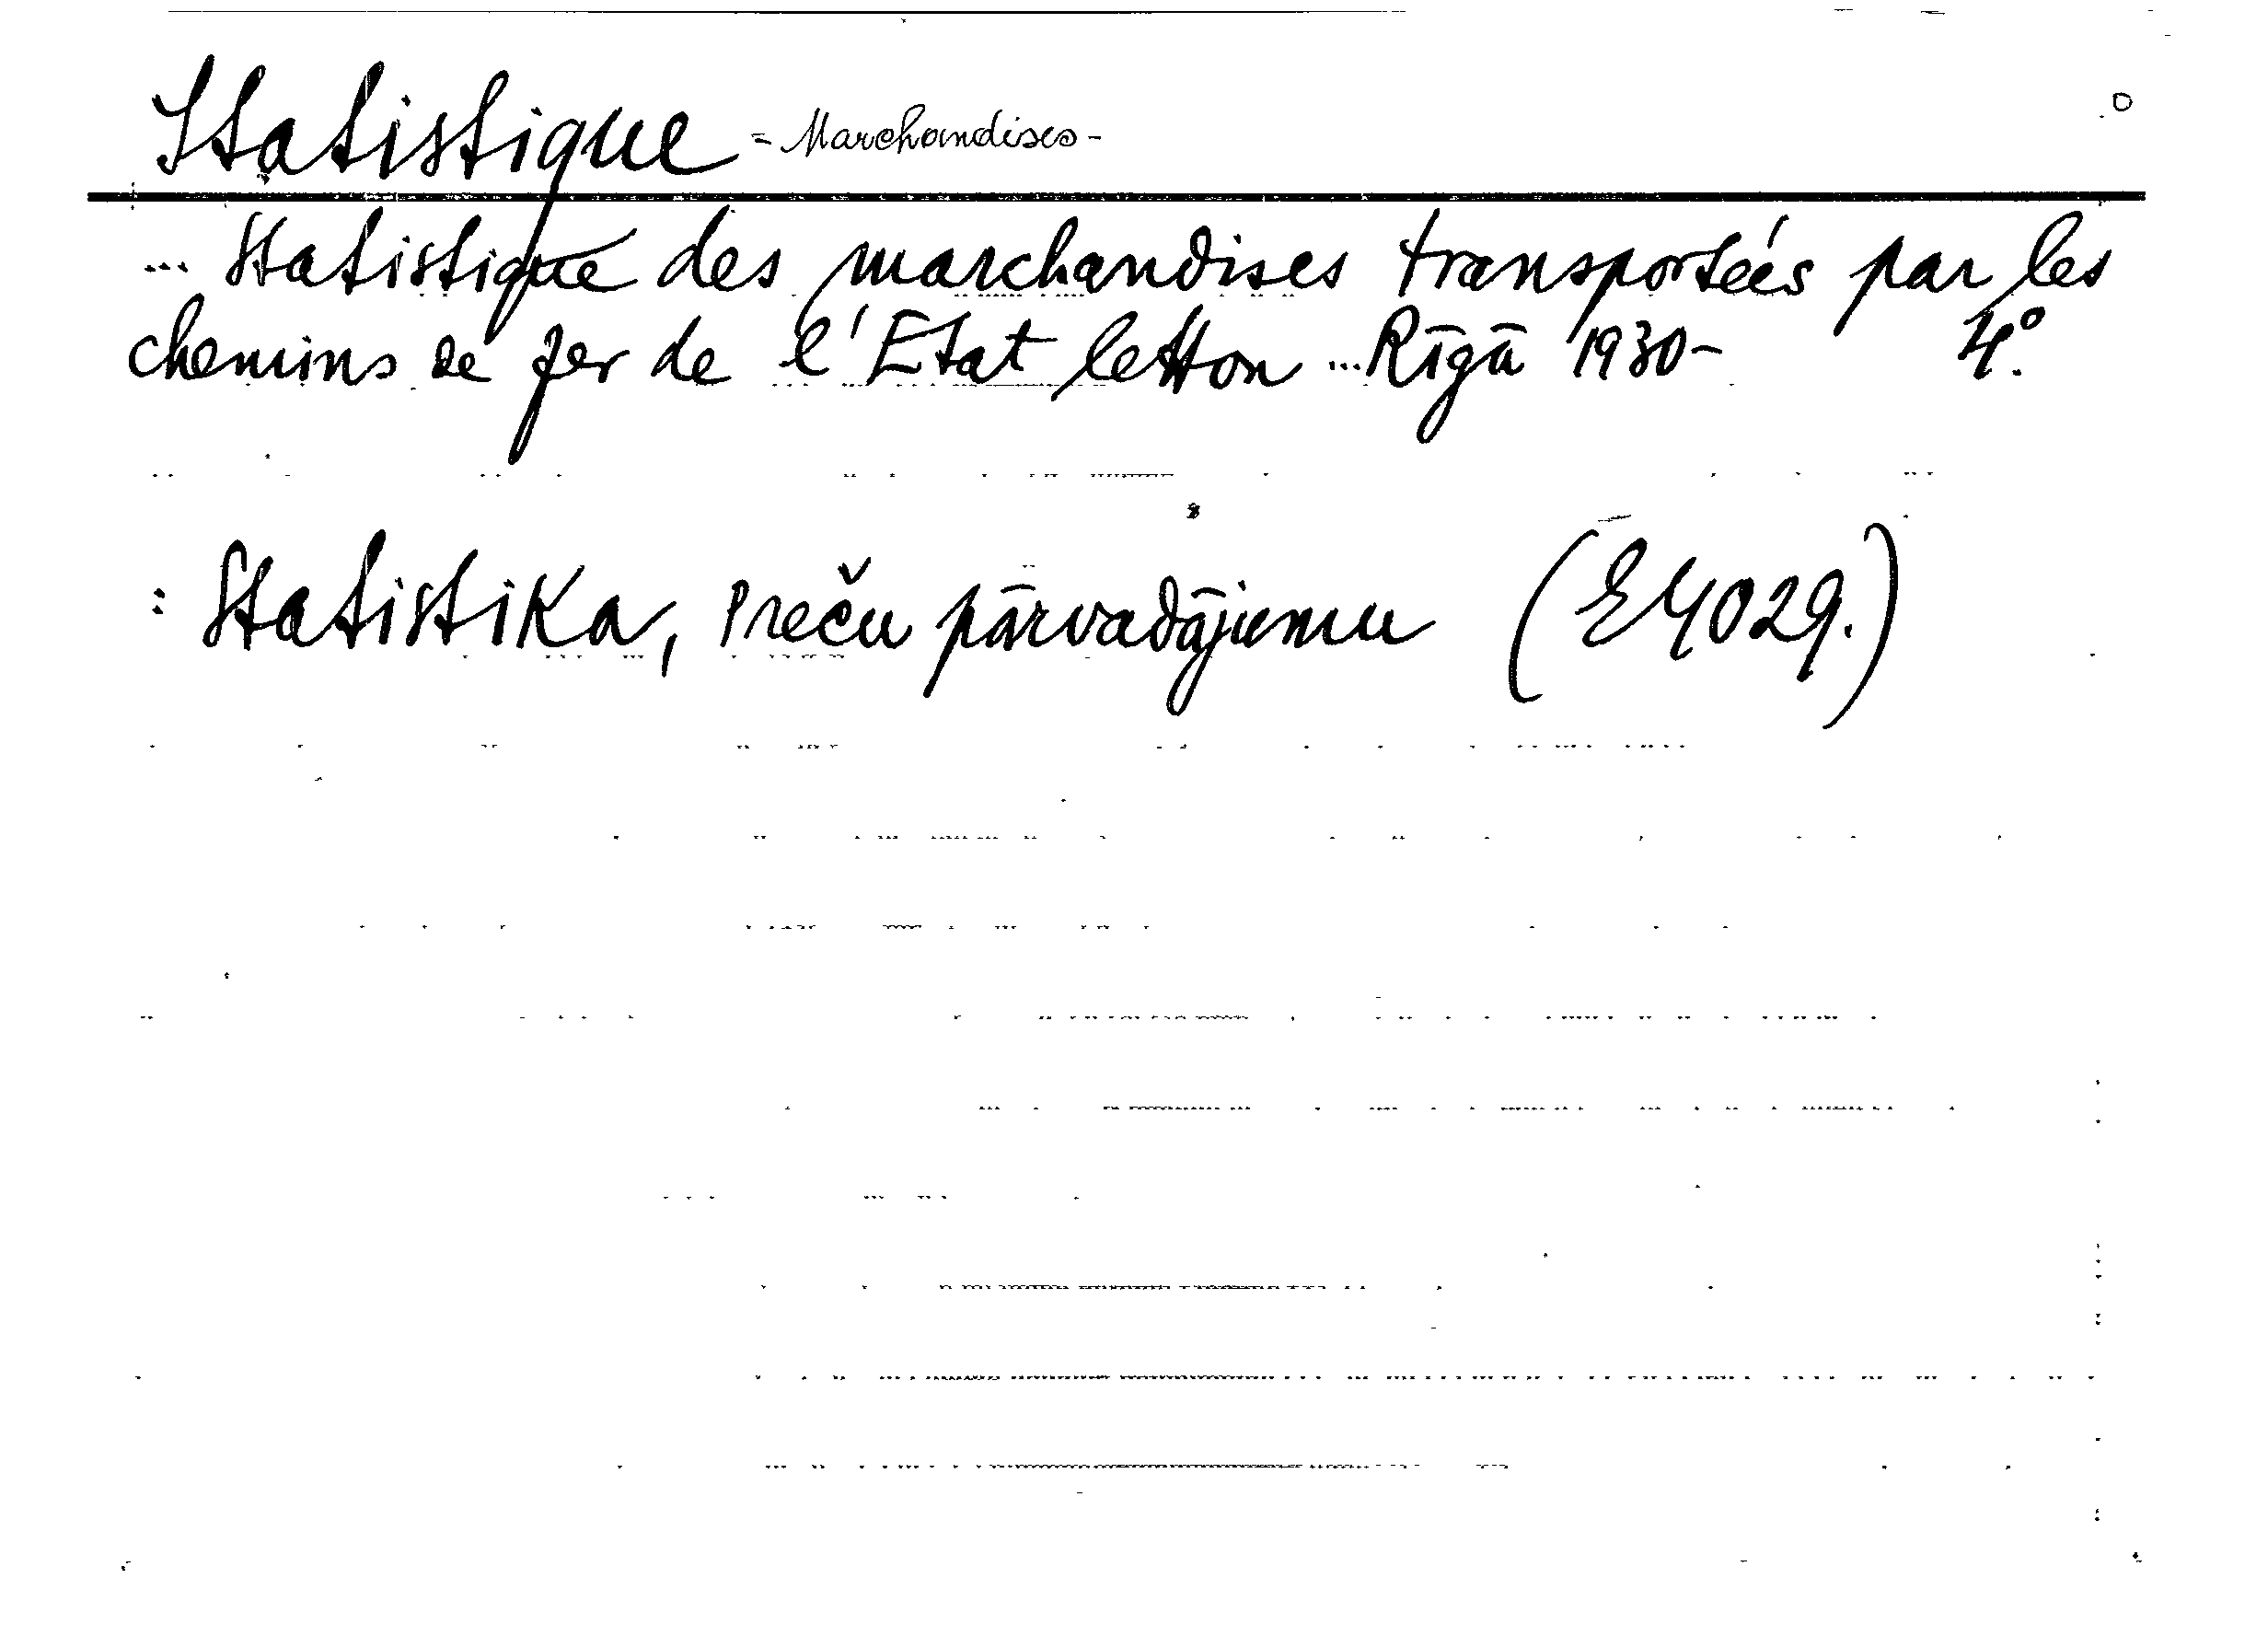 Statistique - Marchandises -
... Statistique des marchandises transportées par les
chemins de fer de l'Etat letton ... Rīgā 1930- 4°.
: Statistika, Preču pārvadājumu (E4029.)